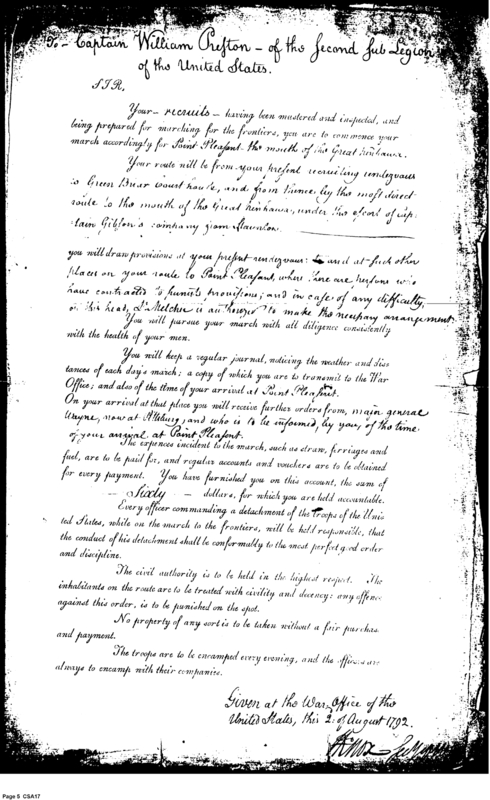 To - Captain William Preston - of the Second Sub Legion
of the United States.
SIR,
Your - recruits - having been mustered and inspected, and
being prepared for marching for the frontiers, you are to commence your
march accordingly for Point Pleasant the mouth of the Great Kenhawa.
Your route will be from your present recruiting rendezvous
to Green Briar Court house, and from thence by the most direct
route to the mouth of the Great Kenhawa, under the escort of Cap-
tain Gibson's company from Staunton.
you will draw provisions at your present rendezvous: and at such other
places on your route to Point Pleasant, where there are persons who
have contracted to furnish provisions; and in case of any difficulty,
on this head, is authorized to make the necessary arrangement.
You will pursue your march with all diligence consistently
with the health of your men.
You will keep a regular journal, noticing the weather and dis
tances of each day's march; a copy of which you are to transmit to the War
Office; and also of the time of your arrival at Point Pleasant.
On your arrival at that place you will receive further orders from, major general
Wayne, now at Pittsburg, and who is to be informed, by you, of the time
of your arrival at Point Pleasant.
The expences incident to the march, such as straw, ferriages and
fuel, are to be paid for, and regular accounts and vouchers are to be obtained
for every payment. You have furnished you on this account, the sum of
- Sixty - dollars, for which you are held accountable.
Every officer commanding a detachment of the Troops of the Uni
ted States, while on the march to the frontiers, will be held responsible, that
the conduct of his detachment shall be conformably to the most perfect good order
and discipline.
The civil authority is to be held in the highest respect. The
inhabitants on the route are to be treated with civility and decency: any offence
against this order, is to be punished on the spot.
No property of any sort is to be taken without a fair purchase
and payment.
The troops are to be encamped every evening, and the officers are
always to encamp with their companies.
Given at the War Office of the
United States, this 2d of August 1792.
H Knox
Page 5 CSA17